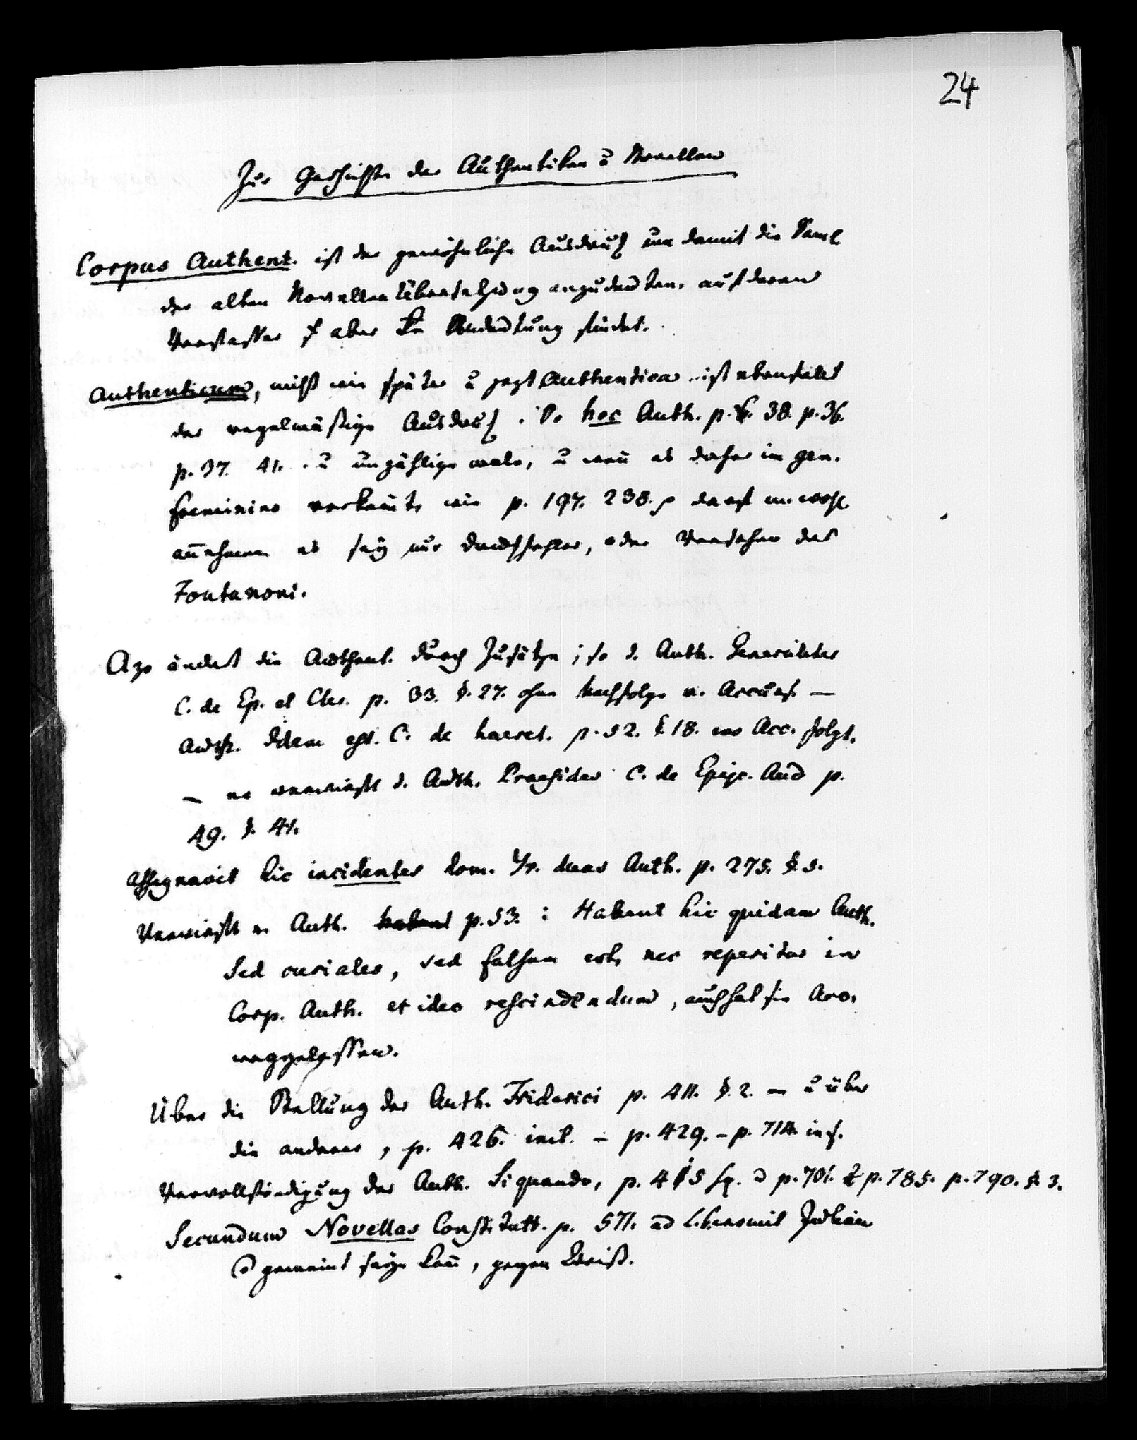 24
Zur Geschichte der Authentiken u Novellen
Corpus Authent. ist der gewöhnliche Ausdruck um damit die Saml
der alten Novellen Übersetzung anzudeuten. auf deren
Verfasser aber Andeutung findet.
Authenticum, nicht wie später u jezt Authentica ist ebenfals
der regelmäßige Ausdruck. hoc Auth. p. 6. 38. p. 36.
p. 37. 41. u unzählige male, u wen es daher im gen.
feminino vorkomt, wie p. 197. 238. darf man wohl
annehmen es sey nur Druckfehler, oder Versehen des
Fontanoni.
Azo ändert die Authent. durch Zusätze; so d. Auth. Generaliter
C. de Ep. et Cler. p. 33. §. 27. ohne Nachfolge v. Accurs. —
Auth. Idem est. C. de haeret. p. 52. §. 18. wo Acc. folgt.
— er verwirft d. Auth. Praesides C. de Episc. Aud p.
49. §. 41.
Assignavit hic incidenter dom. Yr. duas Auth. p. 275. §. 5.
Verwirft er Auth. p. 53. : Habent hic quidam Auth.
Sed curiales, sed falsum est, nec reperitur in
Corp. Auth. et ideo rescindendum, auch hat sie Acc.
weggelassen.
Über die Stellung der Auth. Friderici p. 411. §. 2. — u über
die anderer, p. 426. incl. — p. 429. — p. 714. inf.
Vervollständigung der Auth. Si quando, p. 415 sq. p. 701. p. 785. p. 790. §. 3.
Secundum Novellas Constitutt. p. 571. ad Julian
gemeint seyn kan, gegen